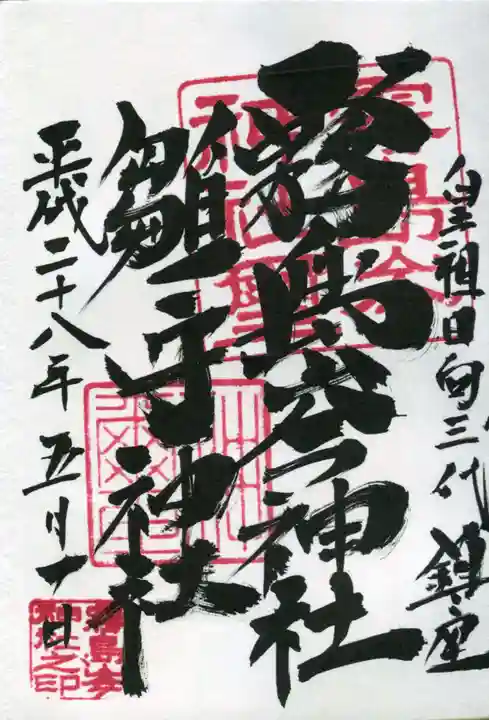 皇祖日向三代鎮座
霧島岑神社
雛守神社
平成二十八年五月十日
霧島岑
神社之印